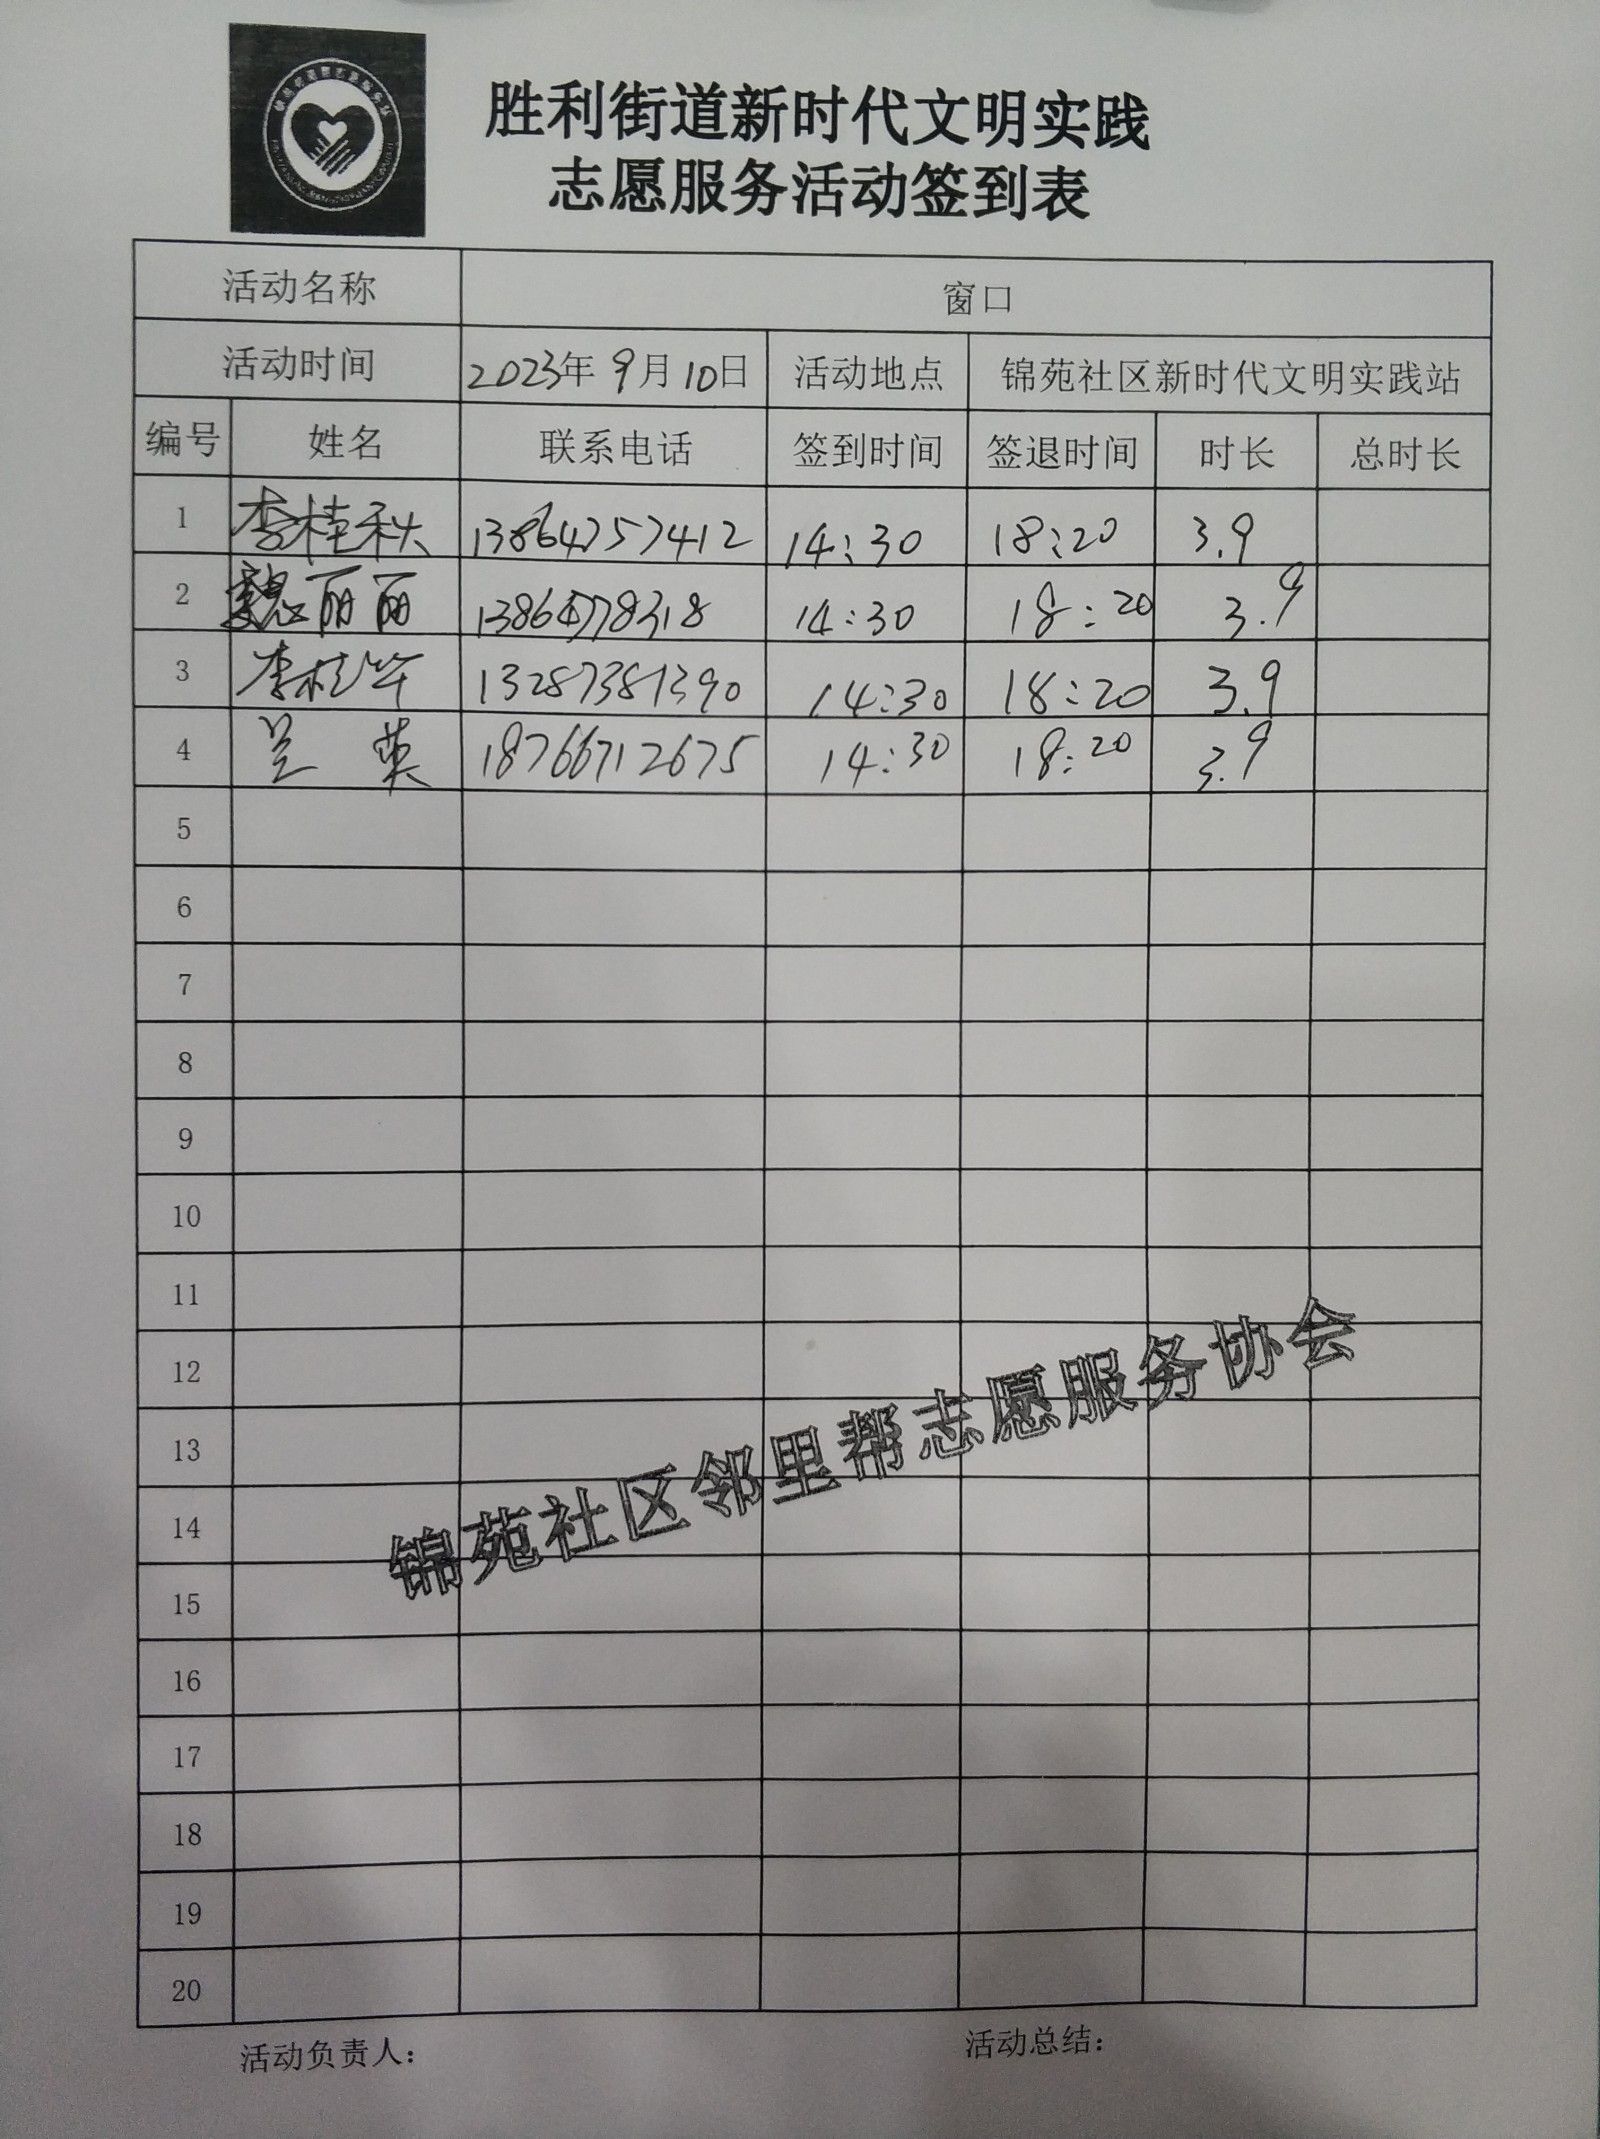 胜利街道新时代文明实践
志愿服务活动签到表
活动名称 窗口
活动时间 2023年 9月 10日 活动地点 锦苑社区新时代文明实践站
编号 姓名 联系电话 签到时间 签退时间 时长 总时长
1 李桂秋 13864757412 14:30 18:20 3.9
2 魏丽丽 14:30 18:20 3.9
3 李桂华 13287381390 14:30 18:20 3.9
4 兰 英 18766712675 14:30 18:20 3.9
5
6
7
8
9
10
11
12
13
14
15
16
17
18
19
20
锦苑社区邻里帮志愿服务协会
活动负责人： 活动总结：